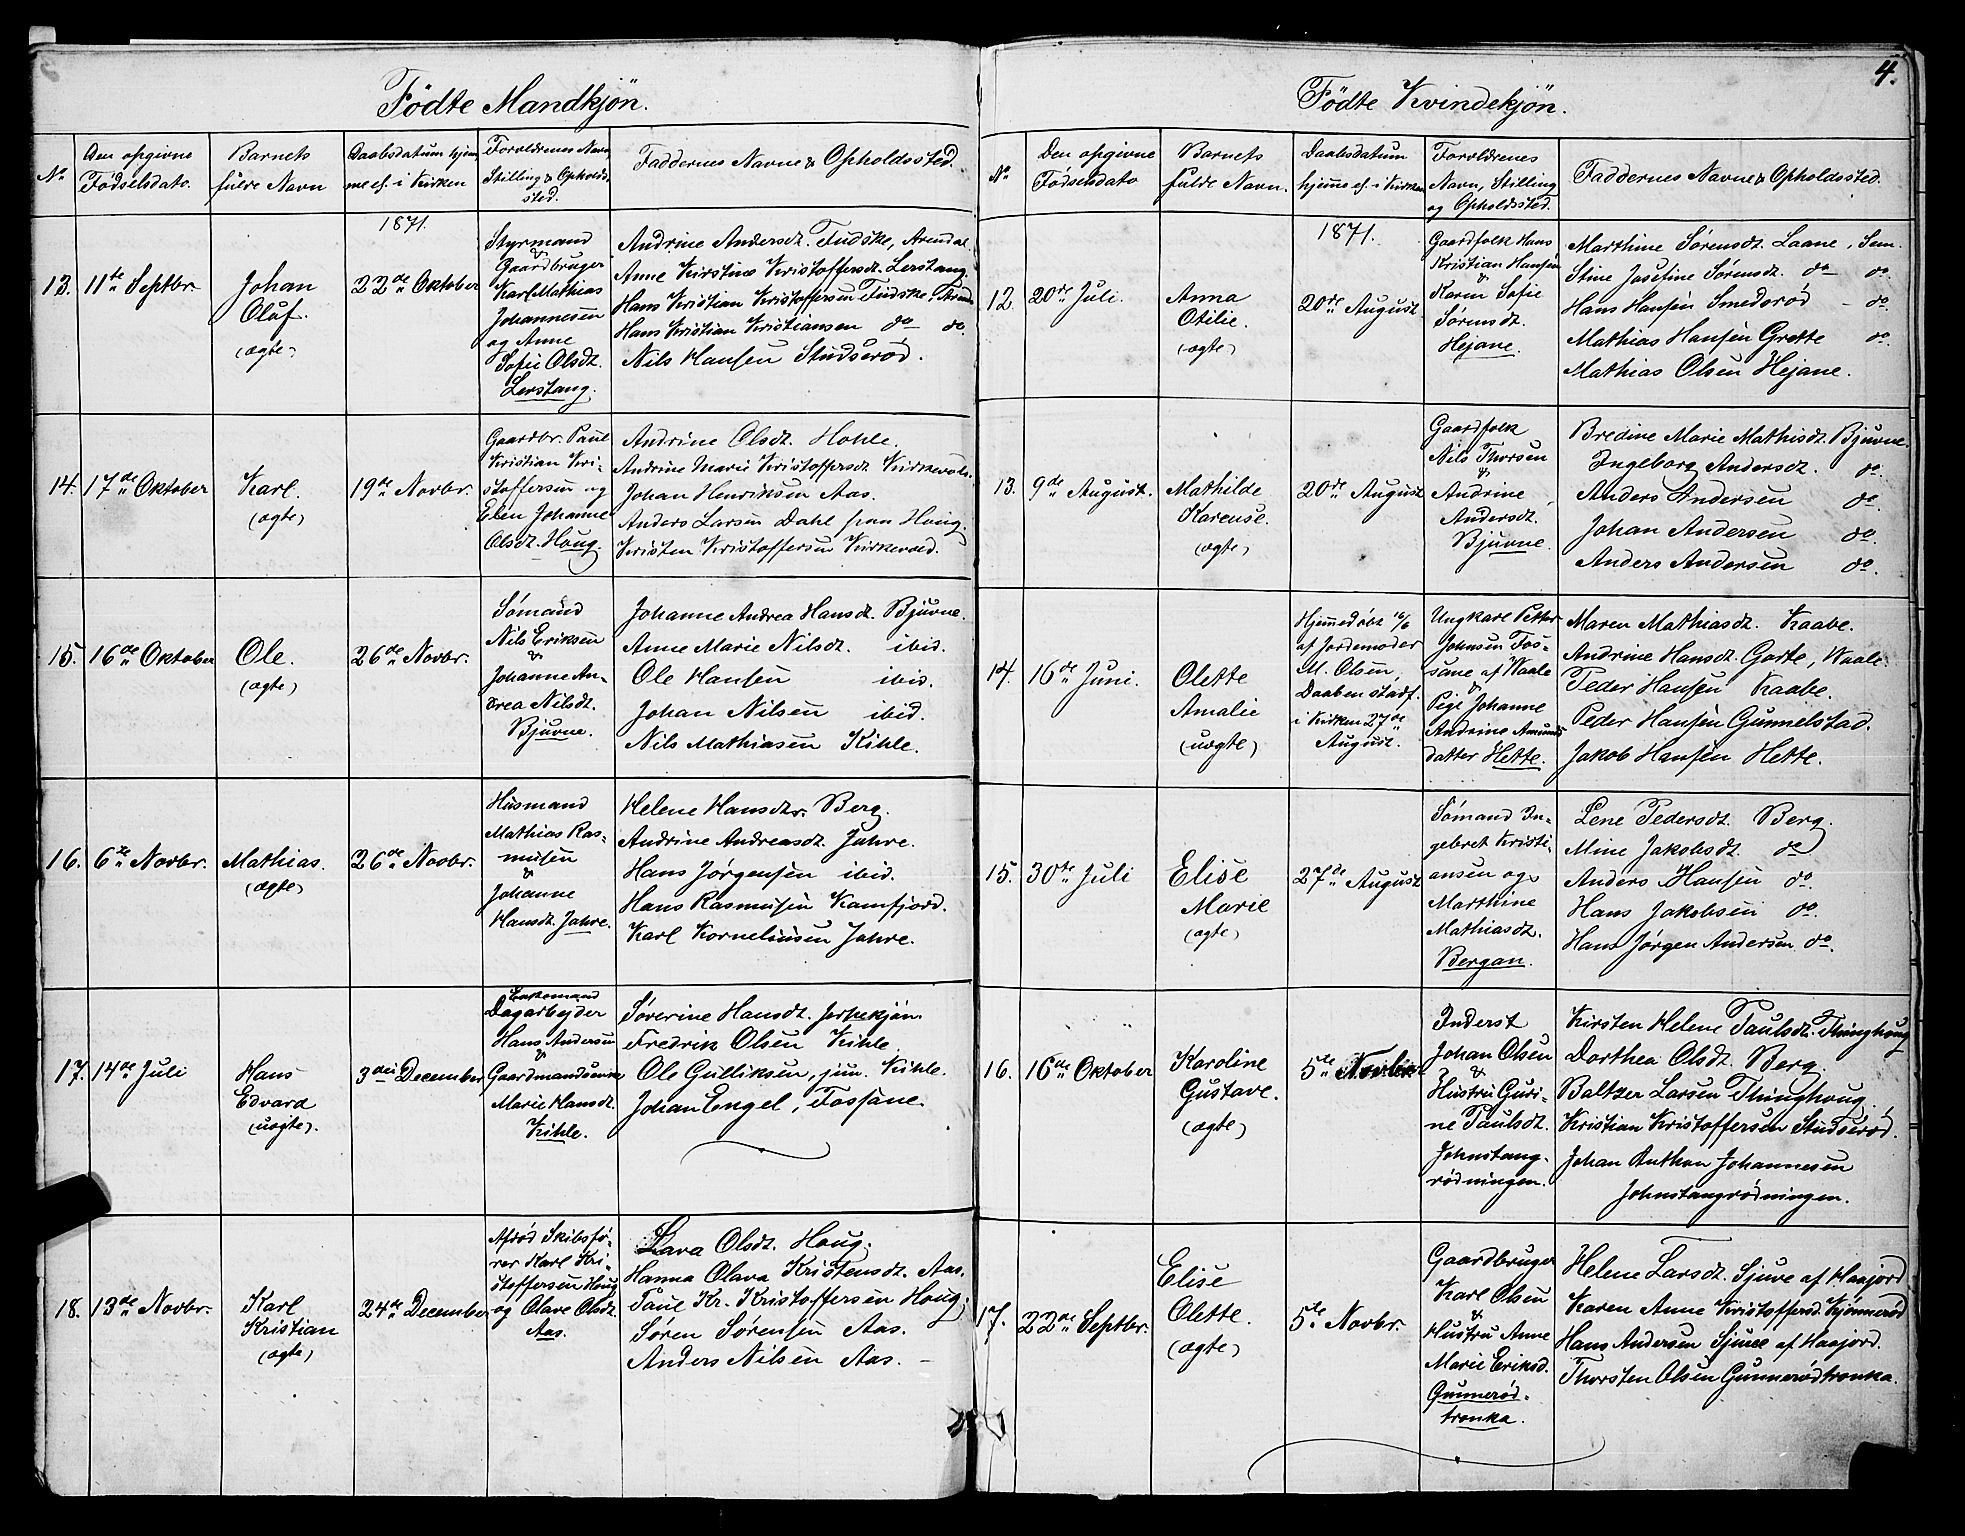 Fødte Mandkjøn.
No
Den opgivne
Fødselsdato.
Barnets
fulde Navn
Daabsdatum hjem-
me el. i Kirken
Forældrenes Navn,
Stilling & Opholds-
sted.
Faddernes Navne & Opholdssted.
1871.
13.
11te Septbr.
Johan
Oluf.
(ægte)
22de Oktober
Styrmand
&
Gaardbruger
Karl Mathias
Johannesen
og Anne
Sofie Olsdt.
Lerstang.
Andrine Andersdt. Fudske, Arendal
Anne Kirstine Kristoffersdt. Lerstang.
Hans Kristian Kristoffersen Fudske,
Hans Kristian Kristiansen do do.
Nils Hansen Studserød.
14.
17de Oktober
Karl.
(ægte)
19de Novbr.
Gaardbr. Paul
Kristian Kri-
stoffersen og
Elen Johanne
Olsdt. Houg.
Andrine Olsdt. Hohle.
Andrine Marie Kristoffersdt. Kirkevold.
Johan Henriksen Aas.
Anders Larsen Dahl paa Houg.
Kristen Kristoffersen Kirkevold.
15.
16de Oktober
Ole.
(ægte)
26de Novbr.
Sømand
Nils Eriksen
&
Johanne An-
drea Nilsdt.
Bjuvne.
Johanne Andrea Hansdt. Bjuvne.
Anne Marie Nilsdt. ibid.
Ole Hansen ibid.
Johan Nilsen ibid.
Nils Mathiasen Kihle.
16.
6te Novbr.
Mathias.
(ægte)
26de Novbr.
Husmand
Mathias Ras-
musen
&
Johanne
Hansdt. Jahre.
Helene Hansdtr. Berg.
Andrine Andreasdt. Jahre.
Hans Jørgensen ibid.
Hans Rasmusen Kamfjord.
Karl Korneliusen Jahre.
17.
14de Juli
Hans
Edvard
(uægte).
3die December
Enkemand
Dagarbejder
Hans Andersen
&
Gaardmandsenke
Marie Hansdt.
Kihle.
Søverine Hansdt. Jerpekjøn
Fredrik Olsen Kihle
Ole Gulliksen, jun. Kihle.
Johan Engel, Fossane.
18.
13de Novbr.
Karl
Kristian
(ægte)
24de December
Afdød Skibsfø-
rer Karl Kri-
stoffersen Houg
og Olave Olsdt.
Aas.
Lava Olsdt. Houg.
Hanna Olava Kristensdt. Aas.
Paul Kr. Kristoffersen Houg.
Søren Sørensen Aas.
Anders Nilsen Aas. –
4.
Fødte Kvindekjøn.
No
Den opgivne
Fødselsdato
Barnets
fulde Navn.
Daabsdatum
hjemme el. i Kirken
Forældrenes
Navn, Stilling
og Opholdssted.
Faddernes Navne & Opholdssted.
1871.
12.
20de Juli.
Anna
Otilie.
(ægte)
20de August
Gaardfolk Hans
Kristian Hansen
&
Karen Sofie
Sørensdt.
Hejane.
Marthine Sørensdt. Laane, Sem.
Stine Josefine Sørensdt. do do.
Hans Hansen Smederød – do.
Mathias Hansen Grette do.
Mathias Olsen Hejane.
13.
9de August.
Mathilde
Karense.
(ægte)
20de August
Gaardfolk
Nils Thorsen
&
Andrine
Andersdt.
Bjuvne.
Bredine Marie Mathisdt. Bjuvne.
Ingeborg Andersdt. do.
Anders Andersen do.
Johan Andersen do.
Anders Andersen do.
14.
16de Juni.
Olette
Amalie
(uægte)
Hjemmedøbt 16/6
af Jordemoder
M. Olsen,
Daaben stadf.
i Kirken 27de
August.
Ungkarl Petter
Johnsen Fos-
sane af Waale
&
Pige Johanne
Andrine Amunds
datter Hette.
Maren Mathiasdt. Kaabe.
Andrine Hansdt. Gorte, Waale.
Peder Hansen Kaabe.
Peder Hansen Gunnelstad.
Jakob Hansen Hette.
15.
30te Juli
Elise
Marie
(ægte)
27de August
Sømand In-
gebret Kristi-
ansen og
Marthine
Mathiasdt.
Bergan.
Lene Pedersdt. Berg.
Mine Jakobsdt. do
Anders Hansen do.
Hans Jakobsen do.
Hans Jørgen Andersen do.
16.
16de Oktober
Karoline
Gustave.
(ægte)
5te Novbr.
Inderst
Johan Olsen
&
Hustru Guri-
ne Paulsdt.
Johnstang-
rødningen.
Kirsten Helene Paulsdt. Thinghoug
Dorthea Olsdt. Berg.
Baltzer Larsen Thinghoug.
Kristian Kristoffersen Studserød.
Johan Anthon Johannesen
Johnstangrødningen.
17.
22de Septbr.
Elise
Olette.
(ægte)
5te Novbr.
Gaardbruger
Karl Olsen
&
Hustru Anne
Marie Eriksd.
Gunnerød-
tronka.
Helene Larsdt. Sjuve af Haajord
Karen Anne Kristoffersd. Kjønnerød
Hans Andersen Sjuve af Haajord.
Thorsten Olsen Gunnerødtronka.